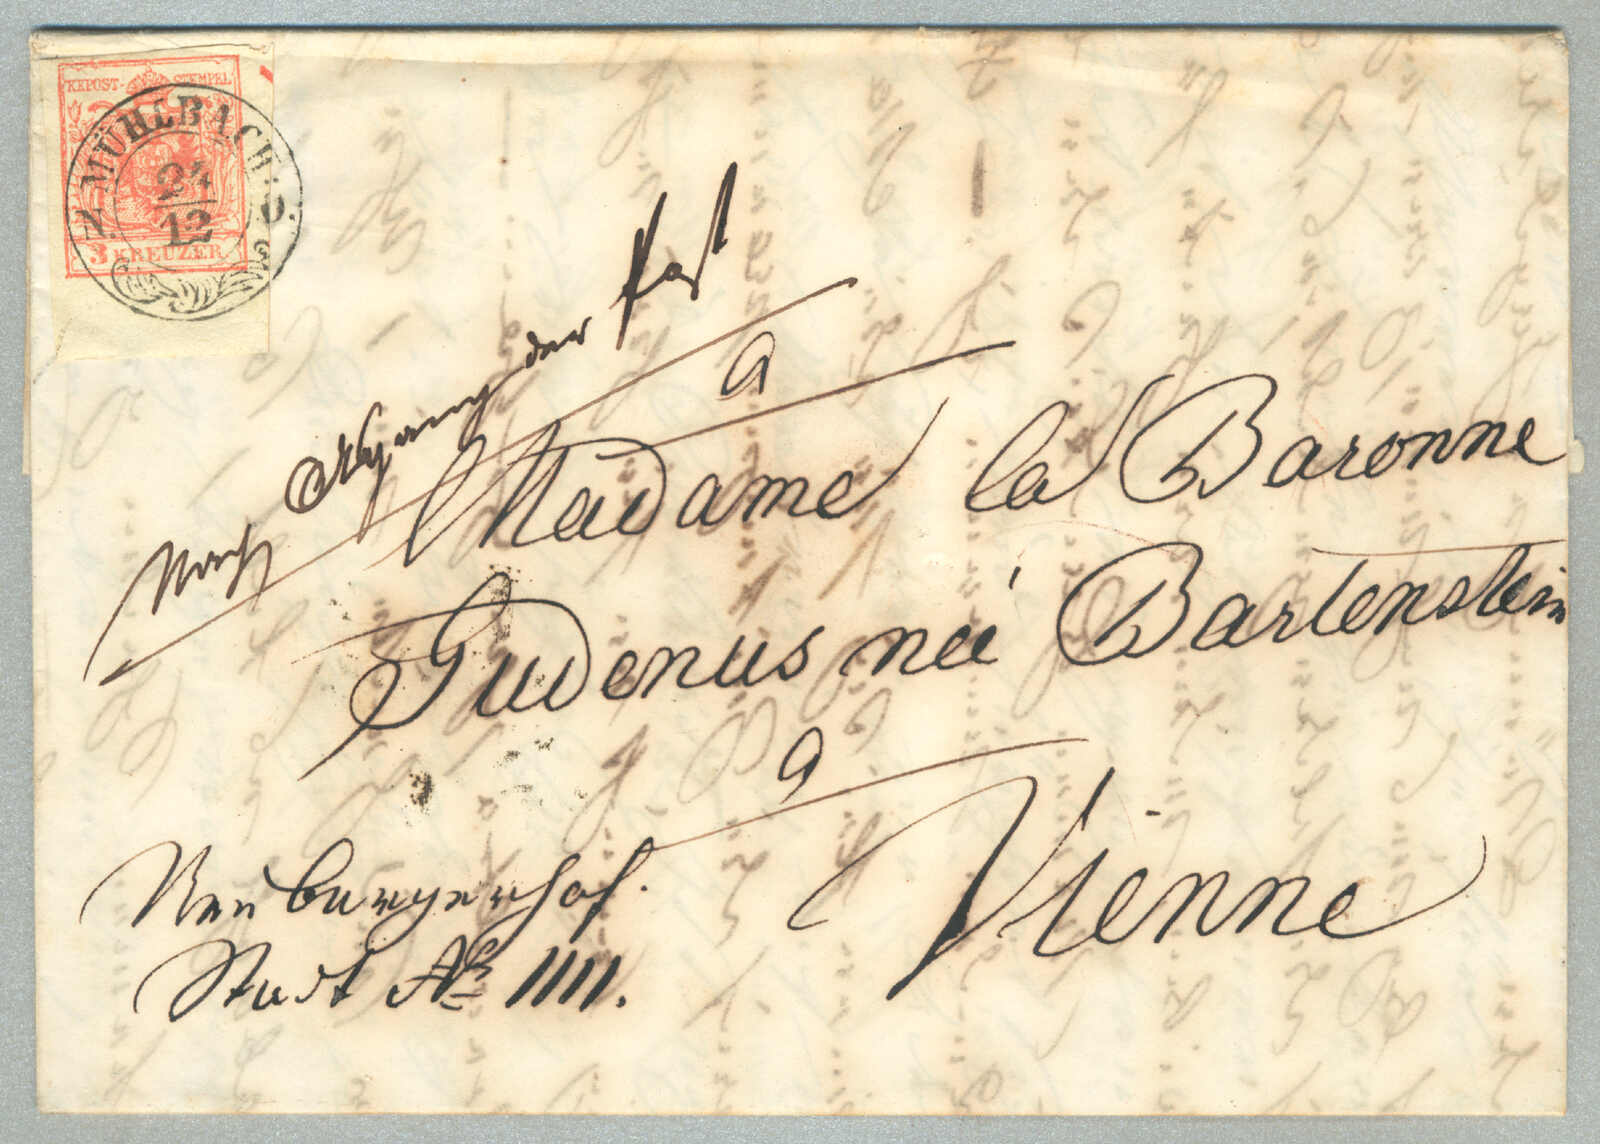 KKPOST-STEMPEL
3 KREUZER
N. MÜHLBACH. O.
24
12
Nach Abgang der Post
a
Madame la Baronne
Gudenus neé Bartenstein
a
Vienne
Neuburgerhof.
Stadt No 1111.